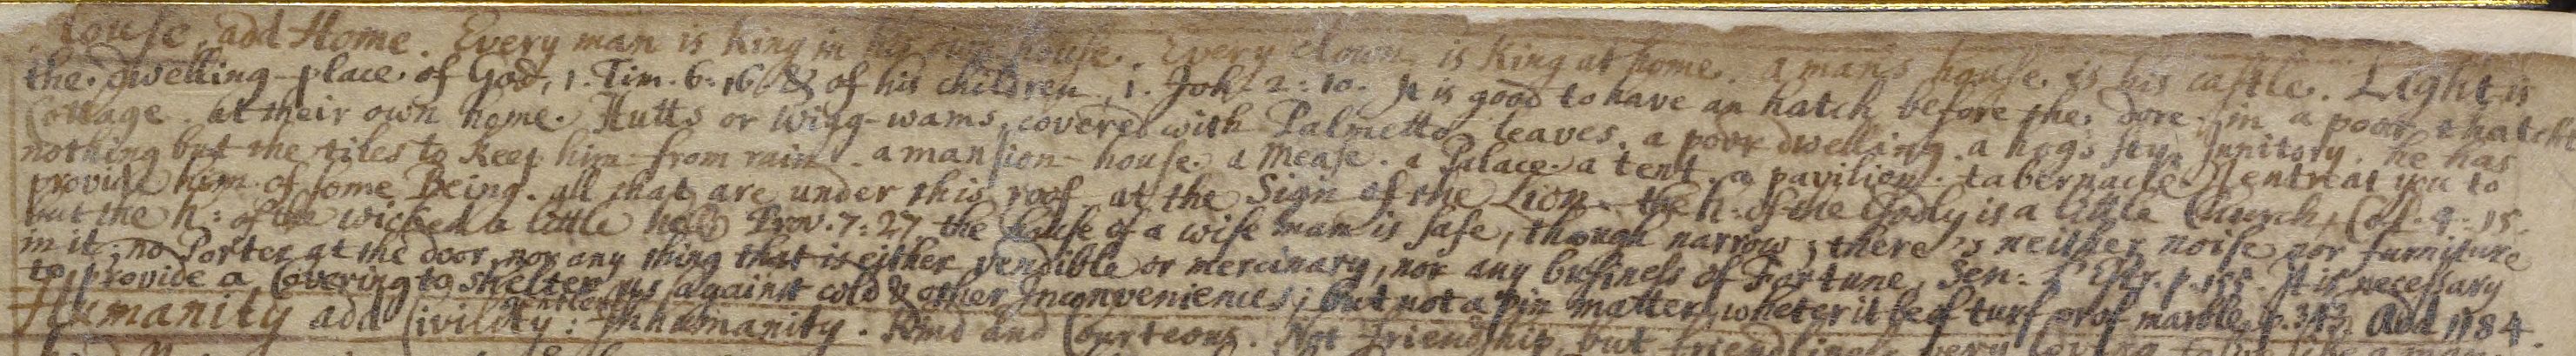 House, add Home. Every man is king in his own house. Every clown is King at home. a man's house is his castle. Light is
the dwelling-place of God, 1. Tim. 6: 16 & of his children, 1. Joh. 2: 10. It is good to have an hatch before the dore. in a poor thatch
Cottage. at their own home. Hutts or Wigg-wams, covered with Palmetto leaves. a poor dwelling. a hogs sty. he has
nothing but the tiles to keep him from rain. a mansion-house. a Mease. a Palace. a tent. a pavilion. tabernacle. I entreat you to
provide him of some Being. all that are under this roof. at the Sign of the Lion. the h: of the Godly is a little Church, Col. 4: 15.
but the h: of the wicked a little hell Prov. 7: 27 the house of a wise man is safe, though narrow; there's neither noise nor furniture
in it; no Porter at the door, nor any thing that is either vendible or mercinary, nor any business of Fortune, Sen: p. 155. It is necessary
to provide a Covering to shelter us against cold & other Inconveniences; but not a pin matter, wheter it be of turf or of marble, p. 343. Add 1184.
Humanity add Civility: Inhumanity. Kind and Courteous. Not friendship, but